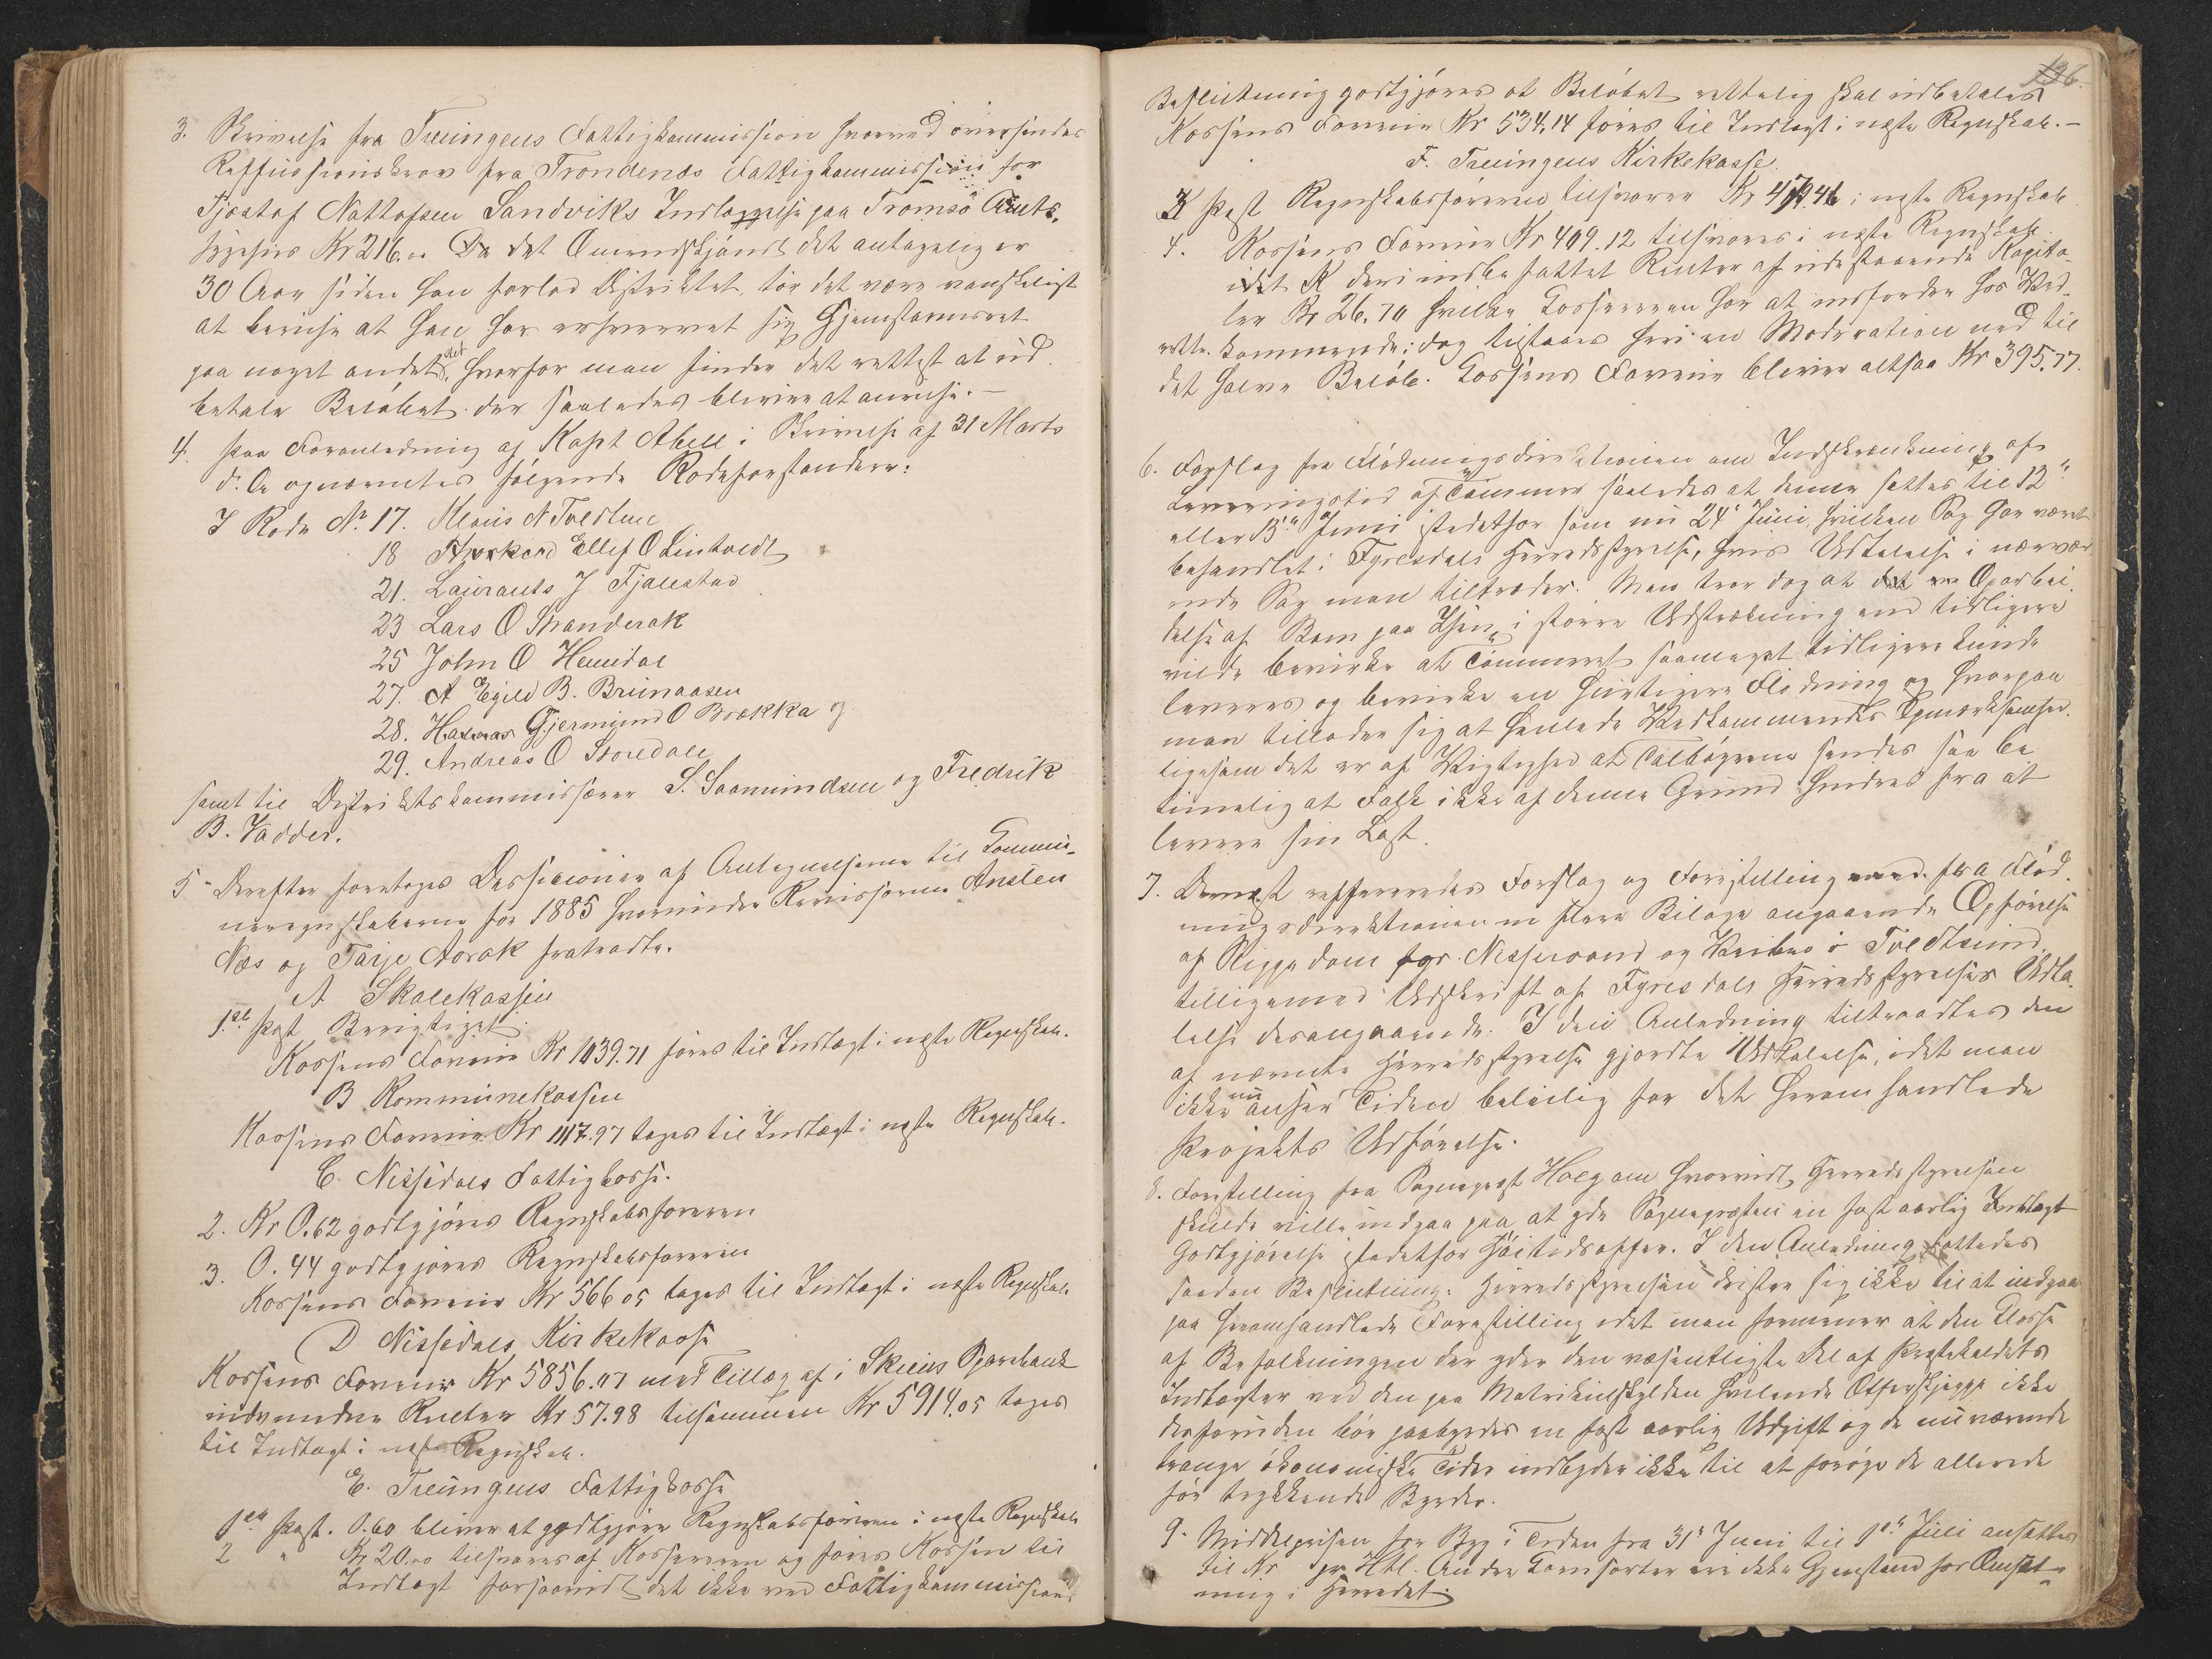 3. Skrivelse fra Treungens Fattigkommission hvorved oversendes
Reffusionskrav fra Trondenæs Fattigkommission for
Tjøstof Nottofsen Sandviks Indlæggelse paa Tromsø Amts-
sygehus Kr 216.00 Da det Omendskjøndt det antagelig er
30 Aar siden han forlod Distriktet, tør det være vanskeligt
at bevise at han har erhvervet sig Hjemstavnsret
paa noget andet Sted, hvorfor man finder det rettest at ud-
betale Beløbet der saaledes bliver at anvise. –
4. Paa Foranledning af Kapt Abell i Skrivelse af 31 Marts
d. A opnævntes følgende Rodeforstandere:
I Rode No 17. Kloüs N Tvedtene
18 Ellef O Lintvedt
21. Laurants J Fjallestad
23 Lars O Stranderak
25 John O Hemidal
27. Egild B. Brunaasen
28. Gjermund O Brækka og
29. Andreas O Storedale
samt til Distriktskommissærer S. Saamundsen og Fredrik
B. Vadder.
5 Derefter foretoges Dessisioner af Antegnelserne til Commu-
neregnskaberne for 1885 hvorunder Revisorerne Anslen
Næs og Tarje Aorak fratraadte.
A Skolekassen
1ste Post Berigtiget.
Kassens Formue Kr 1039.71 føres til Indtægt i næste Regnskab.
B Kommunekassen
Kassens Formue Kr 1117.97 tages til Indtægt i næste Regnskab.
C. Nissedals Fattigkasse.
2. Kr 0.62 godtgjøres Regnskabsføreren
3. 0.44 godtgjøres Regnskabsføreren
Kassens Formue Kr 566 05 tages til Indtægt i næste Regnskab
D Nissedals Kirkekasse
Kassens Formue Kr 5856.07 med Tillæg af i Skiens Sparebank
indvundne Renter Kr 57.98 tilsammen Kr 5914.05 tages
til Indtægt i næste Regnskab.
E. Treungens Fattigkasse
1ste Post. 0.60 bliver at godtgjøre Regnskabsføreren i næste Regnskab
2 " Kr 20.00 tilsvares af Kassereren og føres Kassen til
Indtægt forsaavidt det ikke ved Fattigkommissions
136.
Beslutning godtgjøres at Beløbet rettelig skal udbetales
Kassens Formue Kr 534.14 føres til Indtægt i næste Regnskab. –
F. Treungens Kirkekasse
3 Post Regnskabsføreren tilsvarer Kr 46 i næste Regnskab
4. Kassens Formue Kr 409.12 tilsvares i næste Regnskab
idet deri indbefattet Renter af udestaaende Kapita-
ler Kr 26.70 hvilke Kassereren har at indfordre hos Ved-
rette- kommende; dog tilstaaes heri en Moderation ned til
det halve Beløb. Kassens Formue bliver altsaa Kr 395.77.
6. Forslag fra Flødningsdirektionen om Indskrænkning af
Leveringstid af Tømmer saaledes at denne sættes til 12te
eller 15de Juni istedetfor som nu 24de Juni, hvilken Sag har været
behandlet i Fyresdals Herredsstyrelse, hvis Udtalelse i nærvær-
ende Sag man tiltræder. Man tror dog at en Oparbei-
delse af Bom paa Isen i større Udstrækning end tidligere
vilde bevirke at Tømmeret saameget tidligere kunde
leveres og bevirke en hurtigere Flødning og hvorpaa
man tillader sig at henlede Vedkommendes Opmærksomhed.
ligesom det er af Vigtighed at Talbøgerne sendes saa be
timelig at Folk ikke af denne Grund hindres fra at
levere sin Last.
7. Dernæst reffereredes Forslag og Forestilling fra Flød-
ningsdirektionen m flere Bilage angaaende Opførelse
af Riggedam for Nisservand og i Tvedtsund.
tilligemed Udskrift af Fyresdals Herredsstyrelses Udta-
lelse desangaaende. I den Anledning tiltraadtes den
af nævnte Herredsstyrelse gjordte Udtalelse, idet man
ikke nu anser Tiden beleilig for det heromhandlede
Projekts Udførelse.
8. Forestilling fra Sogneprest Holg om hvorvidt Herredsstyrelsen
skulde ville indgaa paa at yde Sognepresten en fast aarlig
Godtgjørelse istedetfor Høitidsoffer. I den Anledning fattedes
saadan Beslutning: Herredsstyrelsen drister sig ikke til at indgaa
paa heromhandlede Forestilling idet man formener at den Klasse
af Befolkningen der yder den væsentligste Del af Prestekaldets
Indtægter ved den paa Matrikulskylden hvilende ikke
desforuden bør paabyrdes en fast aarlig Udgift og de nuværende
trange økonomiske Tider indbyder ikke til at forøge de allerede
før trykkende Byrder.
9. Middelprisen for Byg i Tiden fra 31te Juni til 1ste Juli ansattes
til Kr pr Htl. Andre Kornsorter ere ikke Gjenstand for Omsæt-
ning i Herredet.